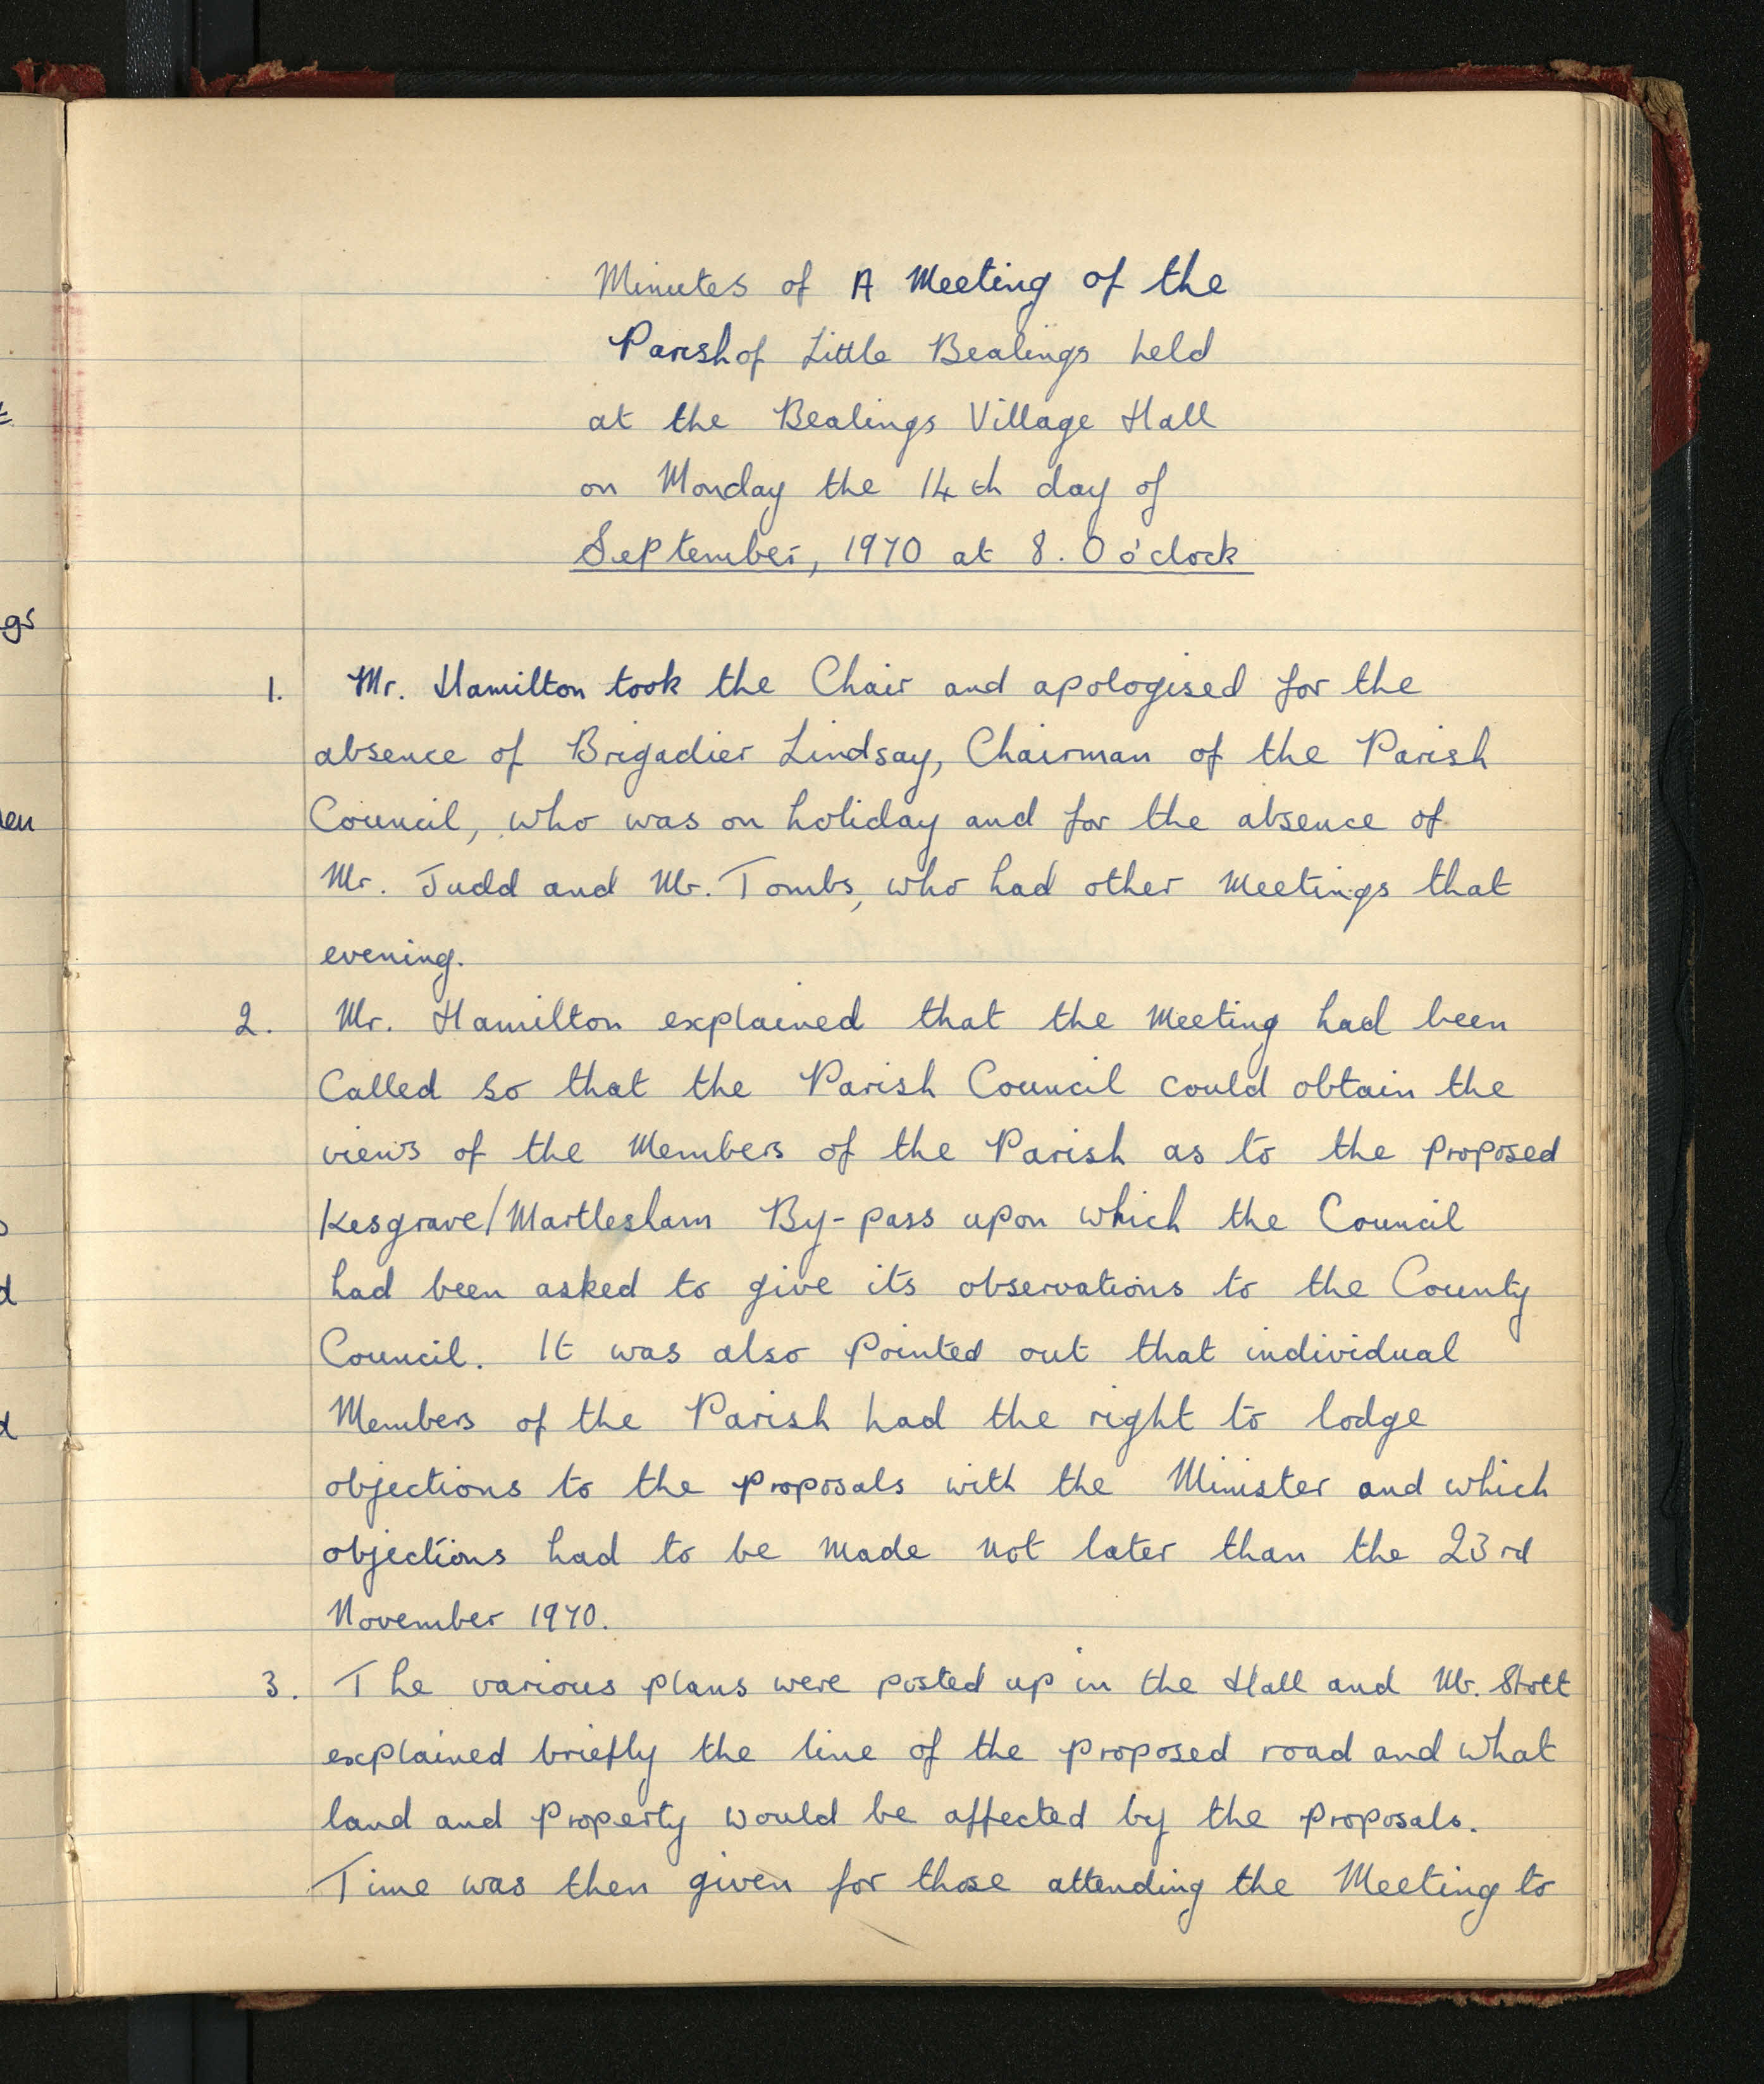 Minutes of A Meeting of the
Parish of Little Bealings held
at the Bealings Village Hall
on Monday the 14th day of
September, 1970 at 8.0 o'clock
1. Mr. Hamilton took the Chair and apologised for the
absence of Brigadier Lindsay, Chairman of the Parish
Council, who was on holiday and for the absence of
Mr. Judd and Mr. Tombs, who had other Meetings that
evening.
2. Mr. Hamilton explained that the Meeting had been
Called so that the Parish Council could obtain the
views of the Members of the Parish as to the proposed
Kesgrave/Martlesham By-pass upon which the Council
had been asked to give its observations to the County
Council. It was also Pointed out that individual
Members of the Parish had the right to lodge
objections to the proposals with the Minister and which
objections had to be made not later than the 23rd
November 1970.
3. The various plans were posted up in the Hall and Mr. Stott
explained briefly the line of the proposed road and what
land and Property would be affected by the proposals.
Time was then given for those attending the Meeting to